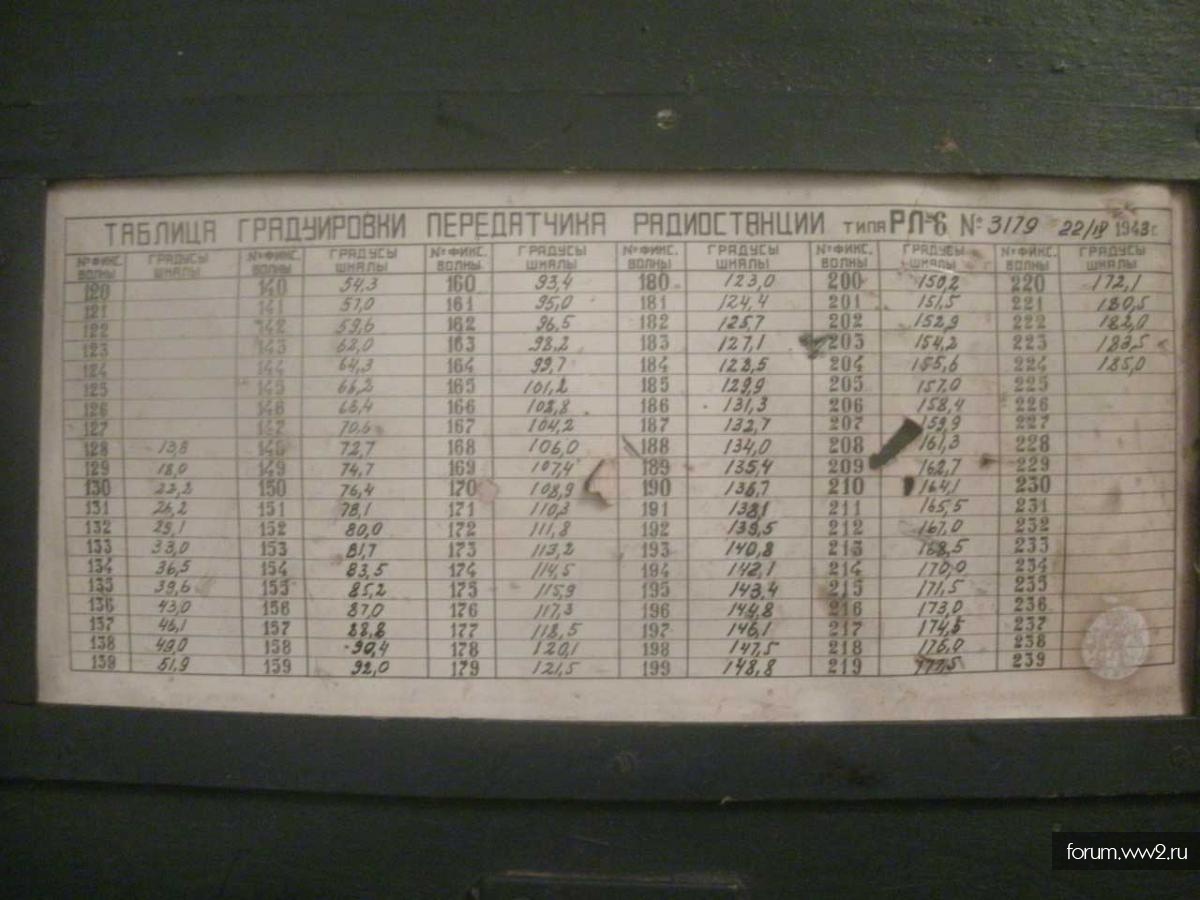 ТАБЛИЦА ГРАДУИРОВКИ ПЕРЕДАТЧИКА РАДИОСТАНЦИИ ТИПА РЛ-6 № 3179 22/IV 1943 г.
№ ФИКС. ВОЛНЫ ГРАДУСЫ ШКАЛЫ № ФИКС. ВОЛНЫ ГРАДУСЫ ШКАЛЫ № ФИКС. ВОЛНЫ ГРАДУСЫ ШКАЛЫ № ФИКС. ВОЛНЫ ГРАДУСЫ ШКАЛЫ № ФИКС. ВОЛНЫ ГРАДУСЫ ШКАЛЫ № ФИКС. ВОЛНЫ ГРАДУСЫ ШКАЛЫ
120 140 54,3 160 93,4 180 123,0 200 150,2 220 172,1
121 141 57,0 161 95,0 181 124,4 201 151,5 221 180,5
122 142 59,6 162 96,5 182 125,7 202 152,9 222 182,0
123 143 62,0 163 98,2 183 127,1 203 154,2 223 183,5
124 144 64,3 164 99,7 184 128,5 204 155,6 224 185,0
125 145 66,2 165 101,2 185 129,9 205 157,0 225
126 146 68,4 166 102,8 186 131,3 206 158,4 226
127 147 70,6 167 104,2 187 132,7 207 159,9 227
128 13,8 148 72,7 168 106,0 188 134,0 208 161,3 228
129 18,0 149 74,7 169 107,4 189 135,4 209 162,7 229
130 22,2 150 76,4 170 108,9 190 136,7 210 164,1 230
131 26,2 151 78,1 171 110,3 191 138,1 211 165,5 231
132 29,1 152 80,0 172 111,8 192 139,5 212 167,0 232
133 33,0 153 81,7 173 113,2 193 140,8 213 168,5 233
134 36,5 154 83,5 174 114,5 194 142,1 214 170,0 234
135 39,6 155 85,2 175 115,9 195 143,4 215 171,5 235
136 43,0 156 87,0 176 117,3 196 144,8 216 173,0 236
137 46,1 157 88,8 177 118,5 197 146,1 217 174,5 237
138 49,0 158 90,4 178 120,1 198 147,5 218 176,0 238
139 51,9 159 92,0 179 121,5 199 148,8 219 177,5 239
forum.ww2.ru